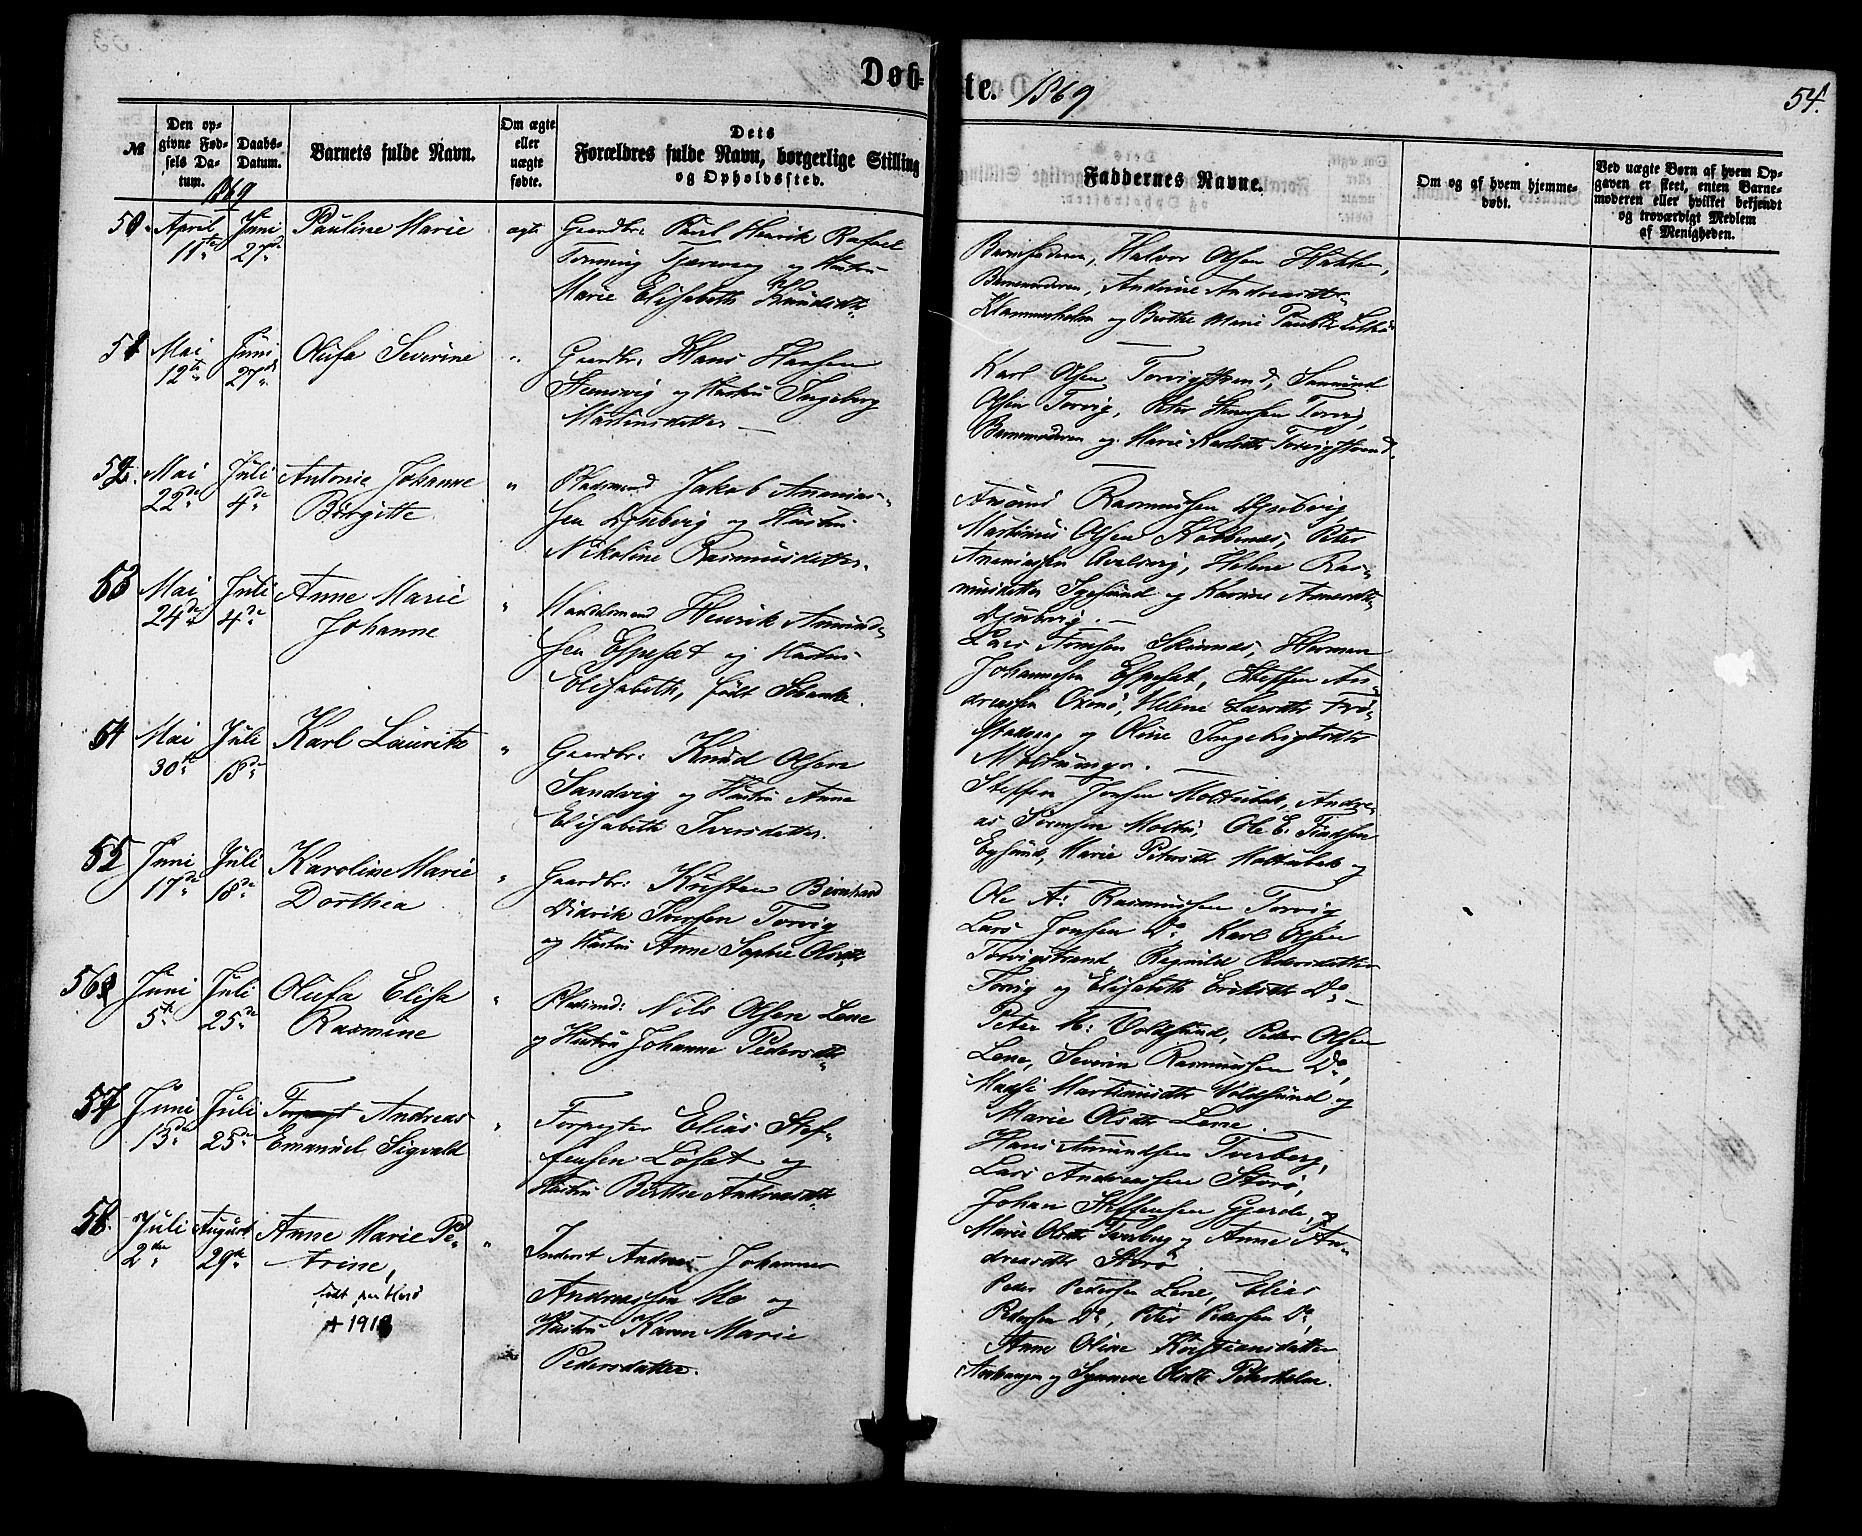 Døbte. 1869
54.
№
Den opgivne Fødsels Datum.
1869
Daabs-Datum.
Barnets fulde Navn.
Om ægte eller uægte fødte.
Dets Forældres fulde Navn, borgerlige Stilling og Opholdssted.
Faddernes Navne.
Om og af hvem hjemmedøbt.
Ved uægte Børn af hvem Opgaven er skeet, enten Barnemoderen eller hvilket bekjendt og troværdigt Medlem af Menigheden.
50. April 11te Juni 27de Pauline Marie ægte
Gaardbr: Paul Henrik Rafael
Tonning Tjervaag og Hustru
Marie Elisabeth Knudsdtr
Barnefaderen, Halvor Olsen
Barnemoderen, Andrine Andreasdtr
og Berthe Marie
51 Mai 12te Juni 27de Olufa Severine "
Gaardbr: Hans Hansen
Stensvig og Hustru Ingeborg
Martinsdatter
Karl Olsen Torvigstrand,
Olsen Torvig, Peter Torvig,
Barnemoderen og Marie Karlsdtr Torvigstrand.
52. Mai 22de Juli 4de Antonie Johanne
Birgitte "
Pladsmand Jakob Ananias-
sen Djubvig og Hustru
Nikoline Rasmusdatter.
Amund Rasmussen Djubvig,
Martinus Olsen Peter
Ananiassen Helene Ras-
musdatter Igesund og Karine
Djubvig.
53 Mai 24de Juli 4de Anne Marie
Johanne "
Handelsmand Henrik Amund-
sen Espeset og Hustru
Elisabeth, født
Lars Herman
Johannesen Espeset, Steffen An-
dreassen Helene
og Oline Ingebrigtsdtr
54 Mai 30te Juli 18de Karl Lauritz "
Gaardbr: Knud Olsen
Sandvig og Hustru Anne
Elisabeth Iversdatter.
Steffen Jonsen Moltubak, Andre-
as Sørensen Moltu, Ole E. Findsen
Egsund, Marie Petersdtr Moltubak og
55 Juni 17de Juli 18de Karoline Marie
Dorthea "
Gaardbr: Kristen Bernhard
Didrik Iversen Torvig
og Hustru Anne Sophie Olsdtr
Ole A: Rasmussen Torvig
Lars Jonsen Do Karl Olsen
Torvigstrand Ragnild Pedersdatter
Torvig og Elisabeth Eriksdtr Do
56 Juni 5te Juli 25de Olufa Elisa
Rasmine "
Pladsmd: Nils Olsen Lene
og Hustru Johanne Pedersdtr
Peter M: Voldsund, Peder Olsen
Lene, Severin Rasmussen Do,
Martinusdtr Voldsund og
Marie Olsdtr Lene.
57 Juni 13de Juli 25de Andreas
Emanuel Sigvald "
Forpagter Elias Stef-
fensen Løset og
Hustru Berthe Andreasdtr
Hans Amundsen Tverberg,
Lars Andreassen Storø,
Johan Steffensen Gjerde, og
Marie Olsdtr Tverberg og Anne An-
dreasdtr Storø
58. Juli 2den August 29de Anne Marie Pe-
trine,
født paa Herø
+ 1918
"
Inderst Andreas Johannes
Andreassen Mo og
Hustru Karen Marie
Pedersdatter.
Peder Pedersen Lene, Elias
Pedersen Do, Peter Pedersen Do,
Anne Oline Kristiansdatter
og Synnøve Olsdtr Petersholm.